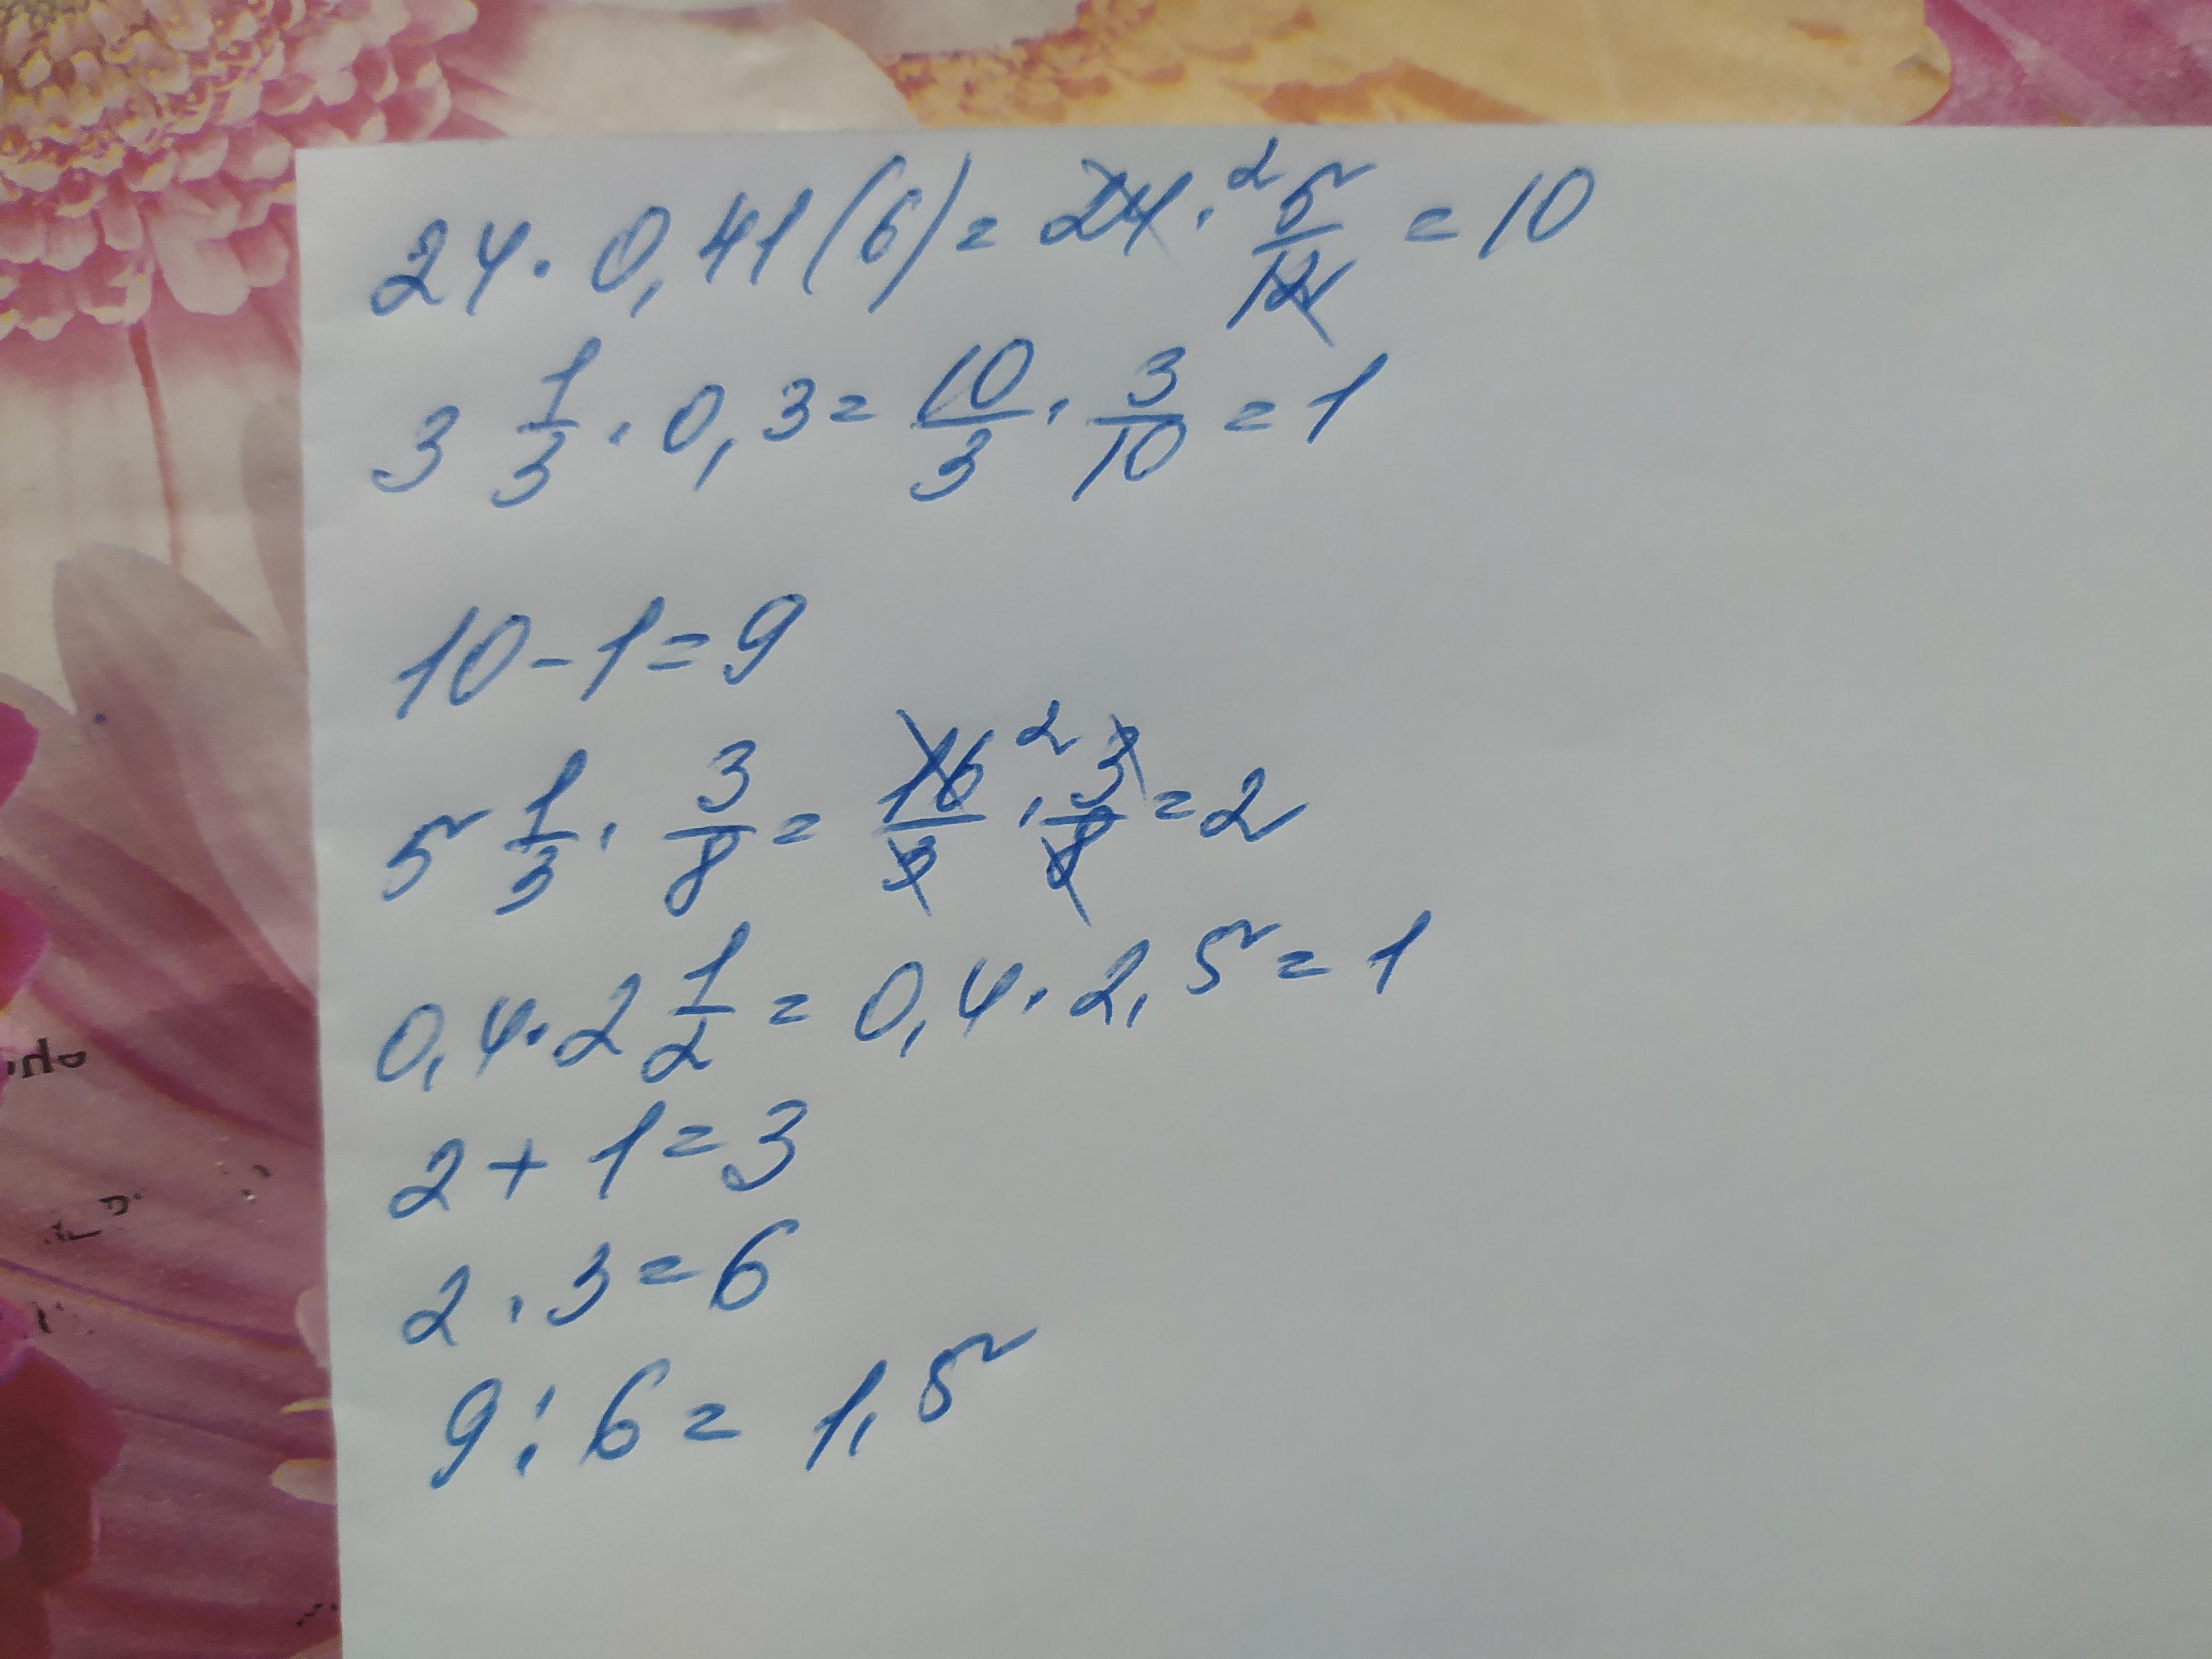 24 · 0,41(6) = 24 · 2 5/12 = 10
3 1/3 · 0,3 = 10/3 · 3/10 = 1
10 - 1 = 9
5 1/3 · 3/8 = 16/3 2 · 3/8 = 2
0,4 · 2 1/2 = 0,4 · 2,5 = 1
2 + 1 = 3
2 · 3 = 6
9 : 6 = 1,5